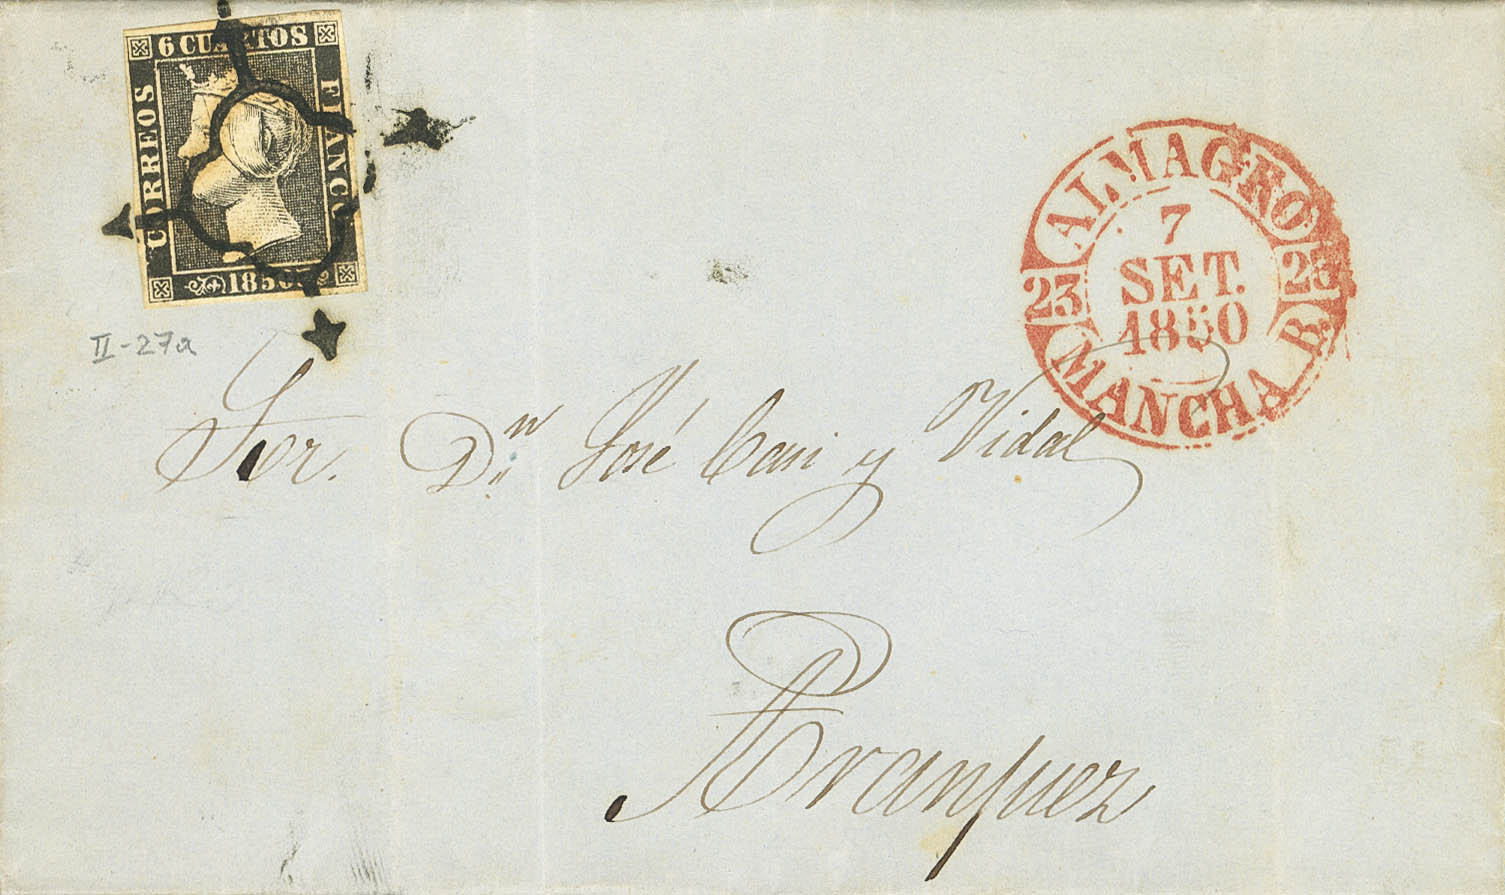 6 CUARTOS
CORREOS
FRANCO
1850
II-27a
ALMAGRO
7
SET.
1850
23
23
MANCHA B.
Sor. Dn. José Cari y Vidal
Aranjuez